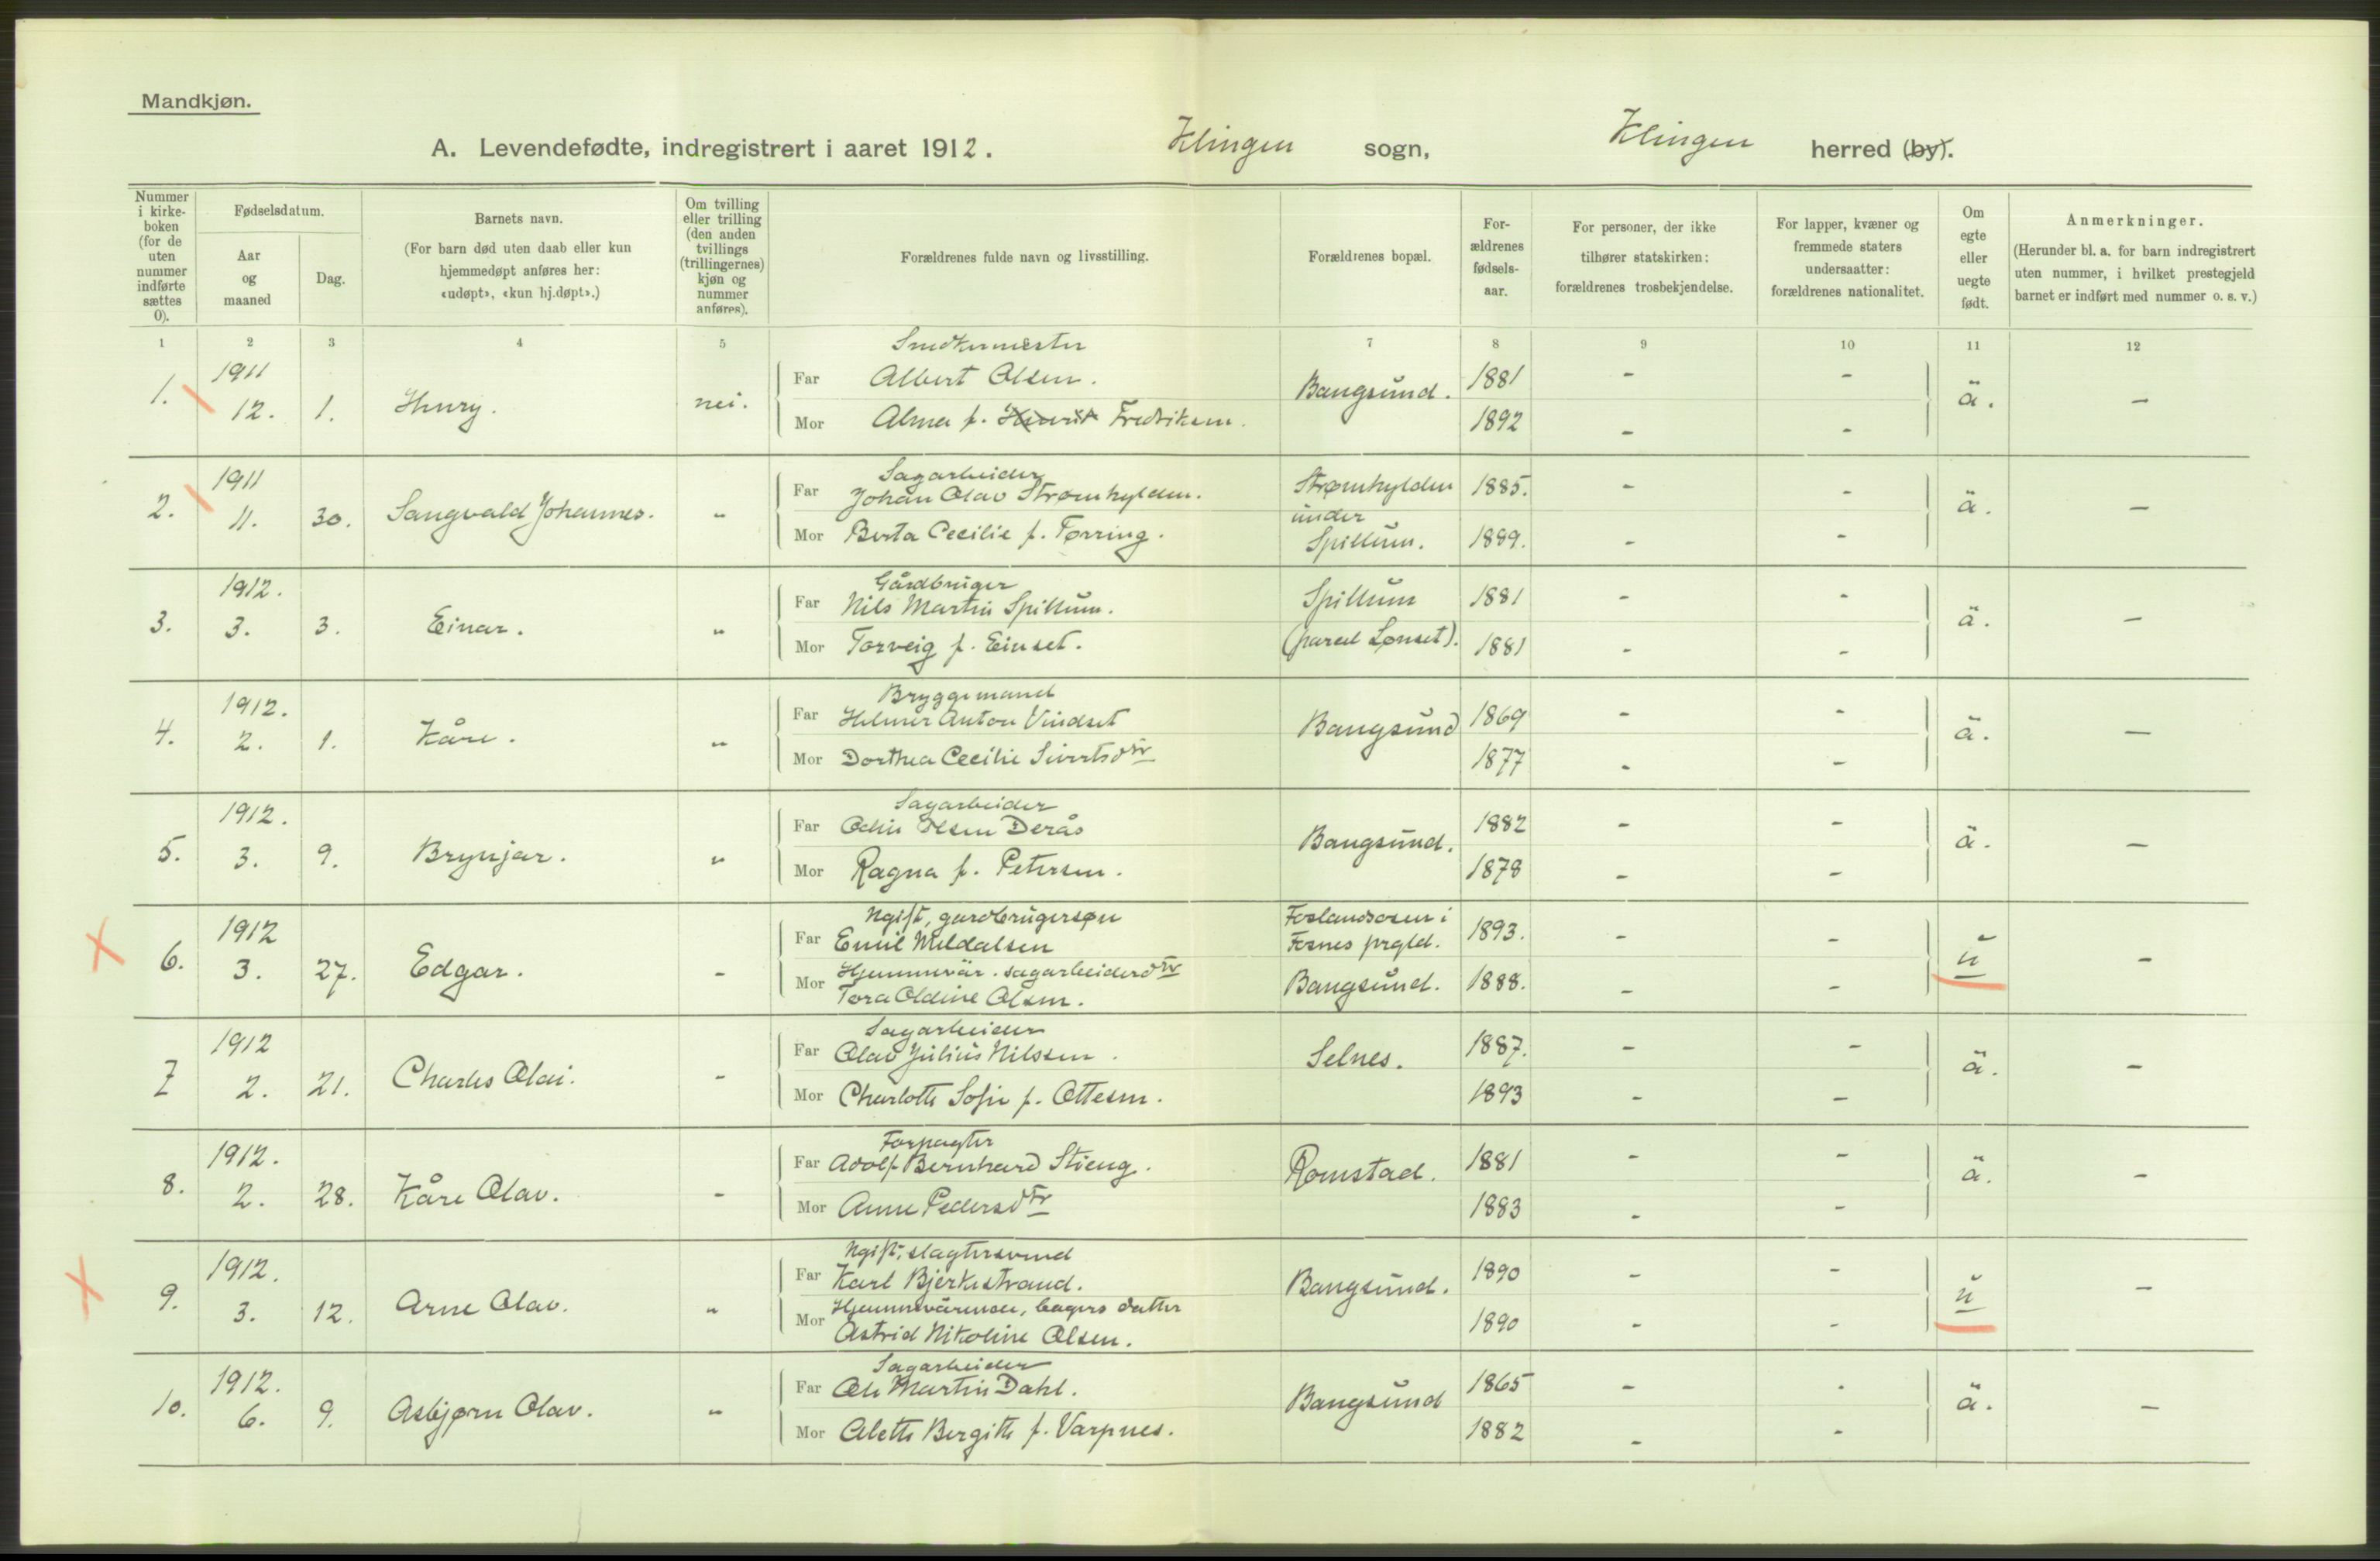 Mandkjøn.
A. Levendefødte, indregistrert i aaret 1912. Klingen sogn, Klingen herred (by).
Nummer i kirkeboken (for de uten nummer indførte sættes 0).
Fødselsdatum.
Aar og maaned
Dag.
Barnets navn.
(For barn død uten daab eller kun hjemmedøpt anføres her: «udøpt», «kun hj.døpt».)
Om tvilling eller trilling (den anden tvillings (trillingernes) kjøn og nummer anføres).
Forældrenes fulde navn og livsstilling.
Forældrenes bopæl.
For-ældrenes fødsels-aar.
For personer, der ikke tilhører statskirken: forældrenes trosbekjendelse.
For lapper, kvæner og fremmede staters undersaatter: forældrenes nationalitet.
Om egte eller uegte født.
Anmerkninger.
(Herunder bl. a. for barn indregistrert uten nummer, i hvilket prestegjeld barnet er indført med nummer o. s. v.)
1 2 3 4 5 7 8 9 10 11 12
Snedkermester
1. 1911 12. 1. Henry. nei. Far Albert Olsen. Bangsund. 1881 - - ä. -
Mor Alma f. Fredriksen. 1892 - -
Sagarbeider
2. 1911 11. 30. Sangvald Johannes. " Far Johan Olav Strømhylden. Strømhylden 1885. - - ä. -
under
Mor Berta Cecilie f. Tørring. Spillum. 1889. - -
Gårdbruger
3. 1912. 3. 3. Einar. " Far Nils Martin Spillum. Spillum 1881 - - ä. -
Mor Torveig f. Einset. (parcel Lønset). 1881 - -
Bryggemand
4. 1912. 2. 1. Kåre. " Far Helmer Anton Vindset Bangsund 1869 - - ä. -
Mor Dorthea Cecilie Sivertsdtr 1877 - -
Sagarbeider
5. 1912. 3. 9. Brynjar. " Far Odin Olsen Derås Bangsund. 1882 - - ä. -
Mor Ragna f. Petersen. 1878 - -
Ugift, gardbrugersøn Foslandsosen i
6. 1912 3. 27. Edgar. - Far Emil Meldalsen Fosnes prgld. 1893. - - u -
Mor Hjemmevär. sagarbeiderdtr
Tora Oldine Olsen. Bangsund. 1888. - -
Sagarbeider
7 1912 2. 21. Charles Olai. - Far Olav Julius Nilssen. Selnes. 1887. - - ä. -
Mor Charlotte Sofie f. Ottesen. 1893 - -
Forpagter
8. 1912. 2. 28. Kåre Olav. - Far Adolf Bernhard Stieng. Romstad. 1881 - - ä. -
Mor Anne Pedersdtr 1883 - -
Ugift, slagtersvend
9. 1912. 3. 12. Arne Olav. " Far Karl Bjerkestrand. Bangsund. 1890 - - u -
Mor Hjemmeværende, bagers datter
Astrid Nikoline Olsen. 1890 - -
Sagarbeider
10. 1912. 6. 9. Asbjørn Olav. " Far Ole Martin Dahl. Bangsund 1865 - - ä. -
Mor Alette Bergitte f. Varpnes. 1882 - -